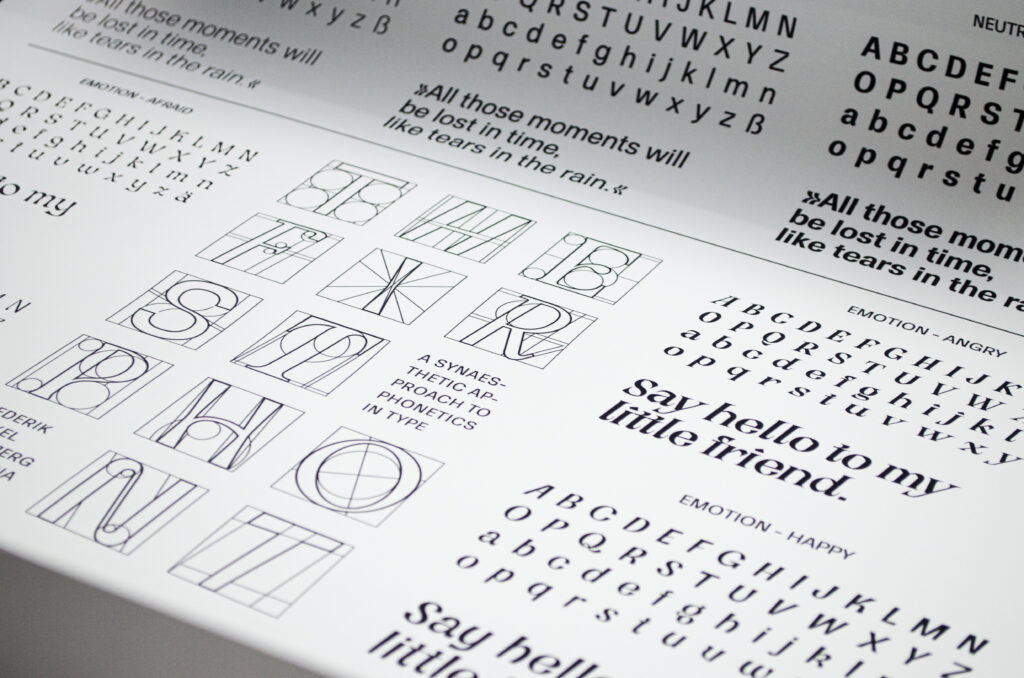 w x y z ß
»All those moments will
be lost in time,
like tears in the rain.«
J K L M N
Q R S T U V W X Y Z
a b c d e f g h i j k l m n
o p q r s t u v w x y z ß
»All those moments will
be lost in time,
like tears in the rain.«
NEUTR
A B C D E F
O P Q R S T
a b c d e f g
o p q r s t u
»All those mom
be lost in time,
like tears in the ra
EMOTION – AFRAID
B C D E F G H I J K L M N
Q R S T U V W X Y Z
d e f g h i j k l m n
t u v w x y z ä
to my
A SYNAES-
THETIC AP-
PROACH TO
PHONETICS
IN TYPE
EDERIK
EL
BERG
IA
S
R
H
O
N
EMOTION – ANGRY
A B C D E F G H I J K
O P Q R S T U V W
a b c d e f g h i j k l
o p q r s t u v w x y
Say hello to my
little friend.
EMOTION – HAPPY
A B C D E F G H I J K L M N
O P Q R S T U V W X Y Z
a b c d e f g h i j k l
o p q r s t u u w
Say hello
little